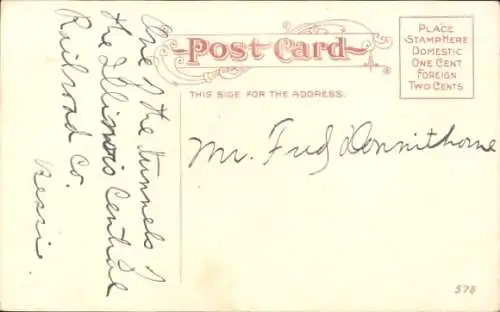 Post Card
THIS SIDE FOR THE ADDRESS.
PLACE
STAMP HERE
DOMESTIC
ONE CENT
FOREIGN
TWO CENTS
One of the tunnels of
the Illinois Central
Railroad Co.
Bessie
Mr. Fred Dennithorne
578